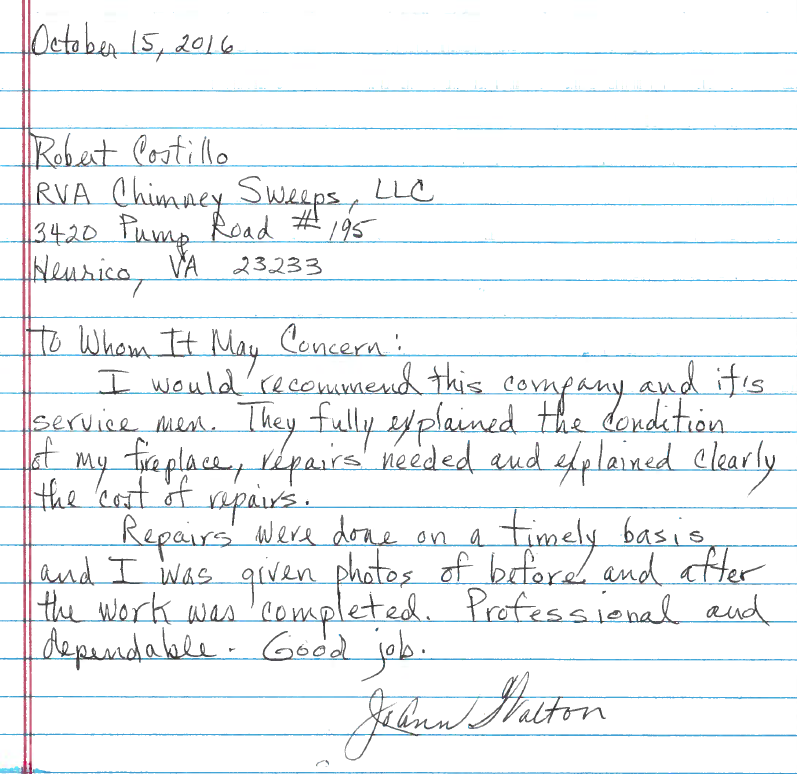 October 15, 2016
Robert Costillo
RVA Chimney Sweeps, LLC
3420 Pump Road # 195
Henrico, VA 23233
To Whom It May Concern:
I would recommend this company and it's
service men. They fully explained the condition
of my fireplace, repairs needed and explained clearly
the cost of repairs.
Repairs were done on a timely basis
and I was given photos of before and after
the work was completed. Professional and
dependable. Good job.
JoAnn Walton